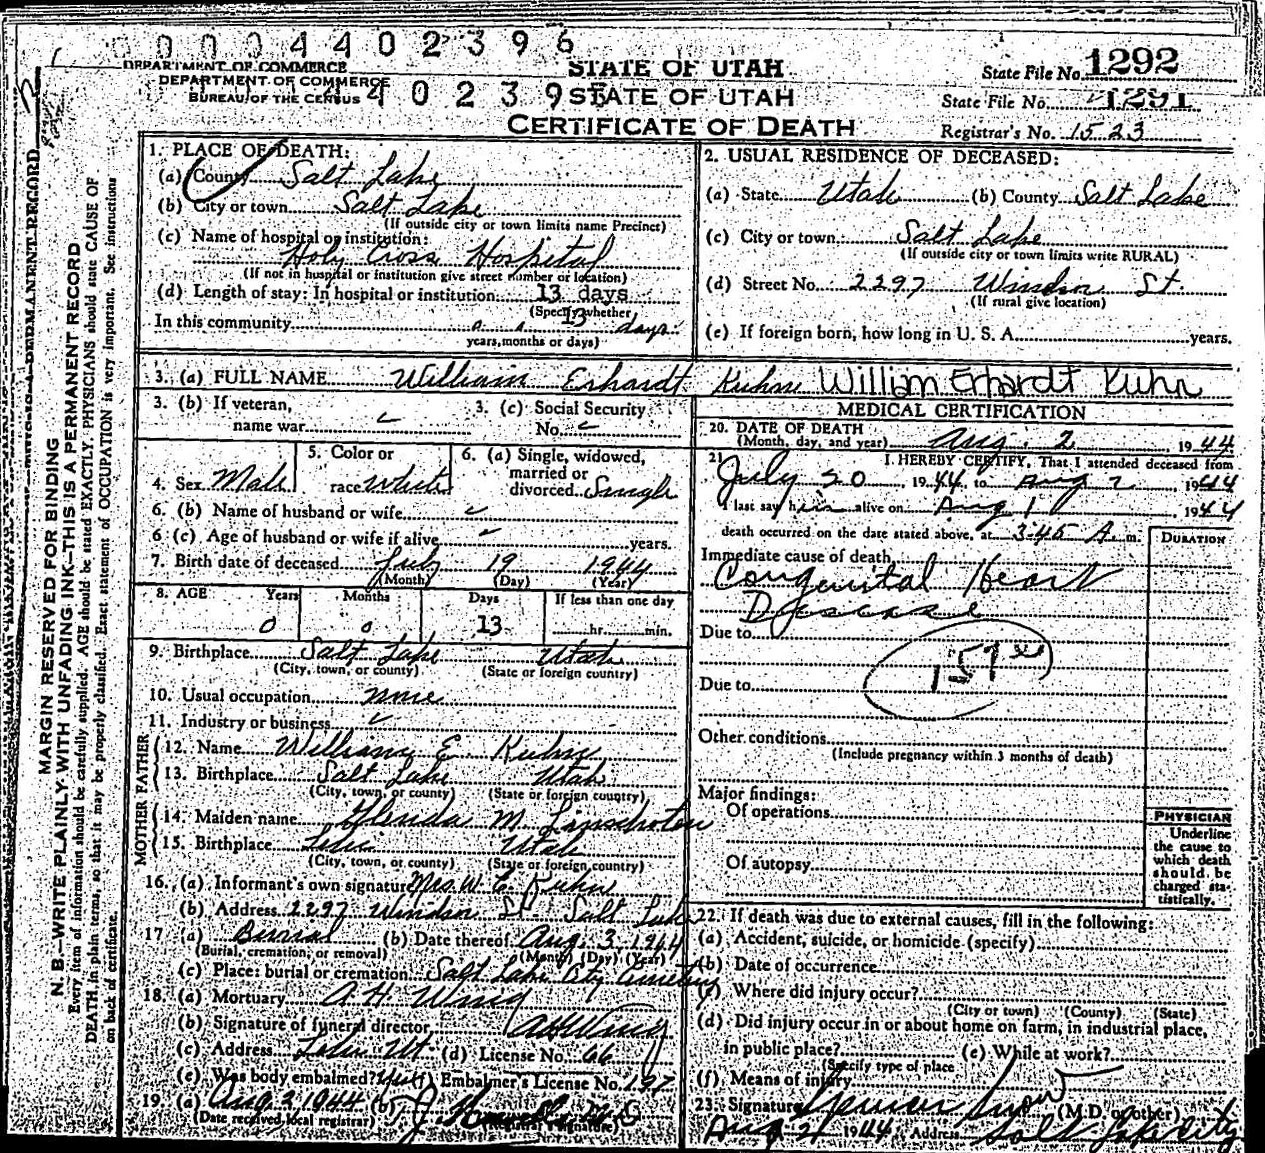 0 0 0 4 4 0 2 3 9 6
DEPARTMENT OF COMMERCE
STATE OF UTAH
State File No. 1292
DEPARTMENT OF COMMERCE
BUREAU OF THE CENSUS
4 4 0 2 3 9
STATE OF UTAH
State File No. 1291
CERTIFICATE OF DEATH
Registrar's No. 1523
MARGIN RESERVED FOR BINDING
N. B.—WRITE PLAINLY, WITH UNFADING INK—THIS IS A PERMANENT RECORD
Every item of information should be carefully supplied. AGE should be stated EXACTLY. PHYSICIANS should state CAUSE OF
DEATH in plain terms, so that it may be properly classified. Exact statement of OCCUPATION is very important. See instructions
on back of certificate.
1. PLACE OF DEATH:
(a) County Salt Lake
(b) City or town Salt Lake
(If outside city or town limits name Precinct)
(c) Name of hospital or institution:
Holy Cross Hospital
(If not in hospital or institution give street number or location)
(d) Length of stay: In hospital or institution: 13 days
(Specify whether
In this community 0 0 13 days
years, months or days)
2. USUAL RESIDENCE OF DECEASED:
(a) State Utah (b) County Salt Lake
(c) City or town Salt Lake
(If outside city or town limits write RURAL)
(d) Street No. 2297 Windsor St.
(If rural give location)
(e) If foreign born, how long in U. S. A. years.
3. (a) FULL NAME William Erhardt Kuhne William Erhardt Kuhn
3. (b) If veteran,
name war
3. (c) Social Security
No.
4. Sex Male
5. Color or
race White
6. (a) Single, widowed,
married or
divorced Single
6. (b) Name of husband or wife
6 (c) Age of husband or wife if alive years.
7. Birth date of deceased July 19 1944
(Month) (Day) (Year)
8. AGE Years Months Days If less than one day
0 0 13 hr. min.
9. Birthplace Salt Lake Utah
(City, town, or county) (State or foreign country)
10. Usual occupation none
11. Industry or business
FATHER
12. Name William E Kuhne
13. Birthplace Salt Lake Utah
(City, town, or county) (State or foreign country)
MOTHER
14. Maiden name Glenda M. Linschoten
15. Birthplace Lehi Utah
(City, town, or county) (State or foreign country)
16. (a) Informant's own signature Mrs. W. E. Kuhn
(b) Address 2297 Windsor St. Salt Lake
17 (a) Burial (b) Date thereof Aug. 3, 1944
(Burial, cremation, or removal) (Month) (Day) (Year)
(c) Place: burial or cremation Salt Lake City Cemetery
18. (a) Mortuary A. H. Wing
(b) Signature of funeral director, A H Wing
(c) Address Lehi Ut. (d) License No. 66
(e) Was body embalmed? Embalmer's License No. 197
19 (a) Aug 2 1944 (b) J.
(Date received local registrar)
MEDICAL CERTIFICATION
20. DATE OF DEATH
(Month, day, and year) Aug. 2, 1944
21 I HEREBY CERTIFY, That I attended deceased from
July 20, 1944 to Aug 2 1944
I last saw him alive on Aug 1, 1944
death occurred on the date stated above, at 3:45 A. m.
DURATION
Immediate cause of death
Congenital Heart
Disease
Due to
Due to
Other conditions
(Include pregnancy within 3 months of death)
Major findings:
Of operations
Of autopsy
PHYSICIAN
Underline
the cause to
which death
should be
charged sta-
tistically.
22. If death was due to external causes, fill in the following:
(a) Accident, suicide, or homicide (specify)
(b) Date of occurrence
Where did injury occur?
(City or town) (County) (State)
(d) Did injury occur in or about home on farm, in industrial place,
in public place? (e) While at work?
(Specify type of place
(f) Means of injury
23. Signature Spencer Snow (M.D. or other)
Aug 2, 1944 Address Salt Lake City